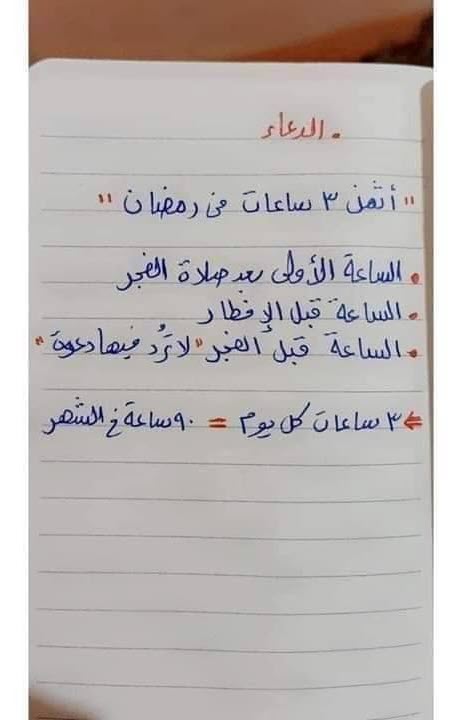 • الدعاء
" أثمن ٣ ساعات في رمضان "
• الساعة الأولى بعد صلاة الفجر
• الساعة قبل الإفطار
• الساعة قبل الفجر "لا تُرد فيها دعوة"
⇐ ٣ ساعات كل يوم = ٩٠ ساعة في الشهر